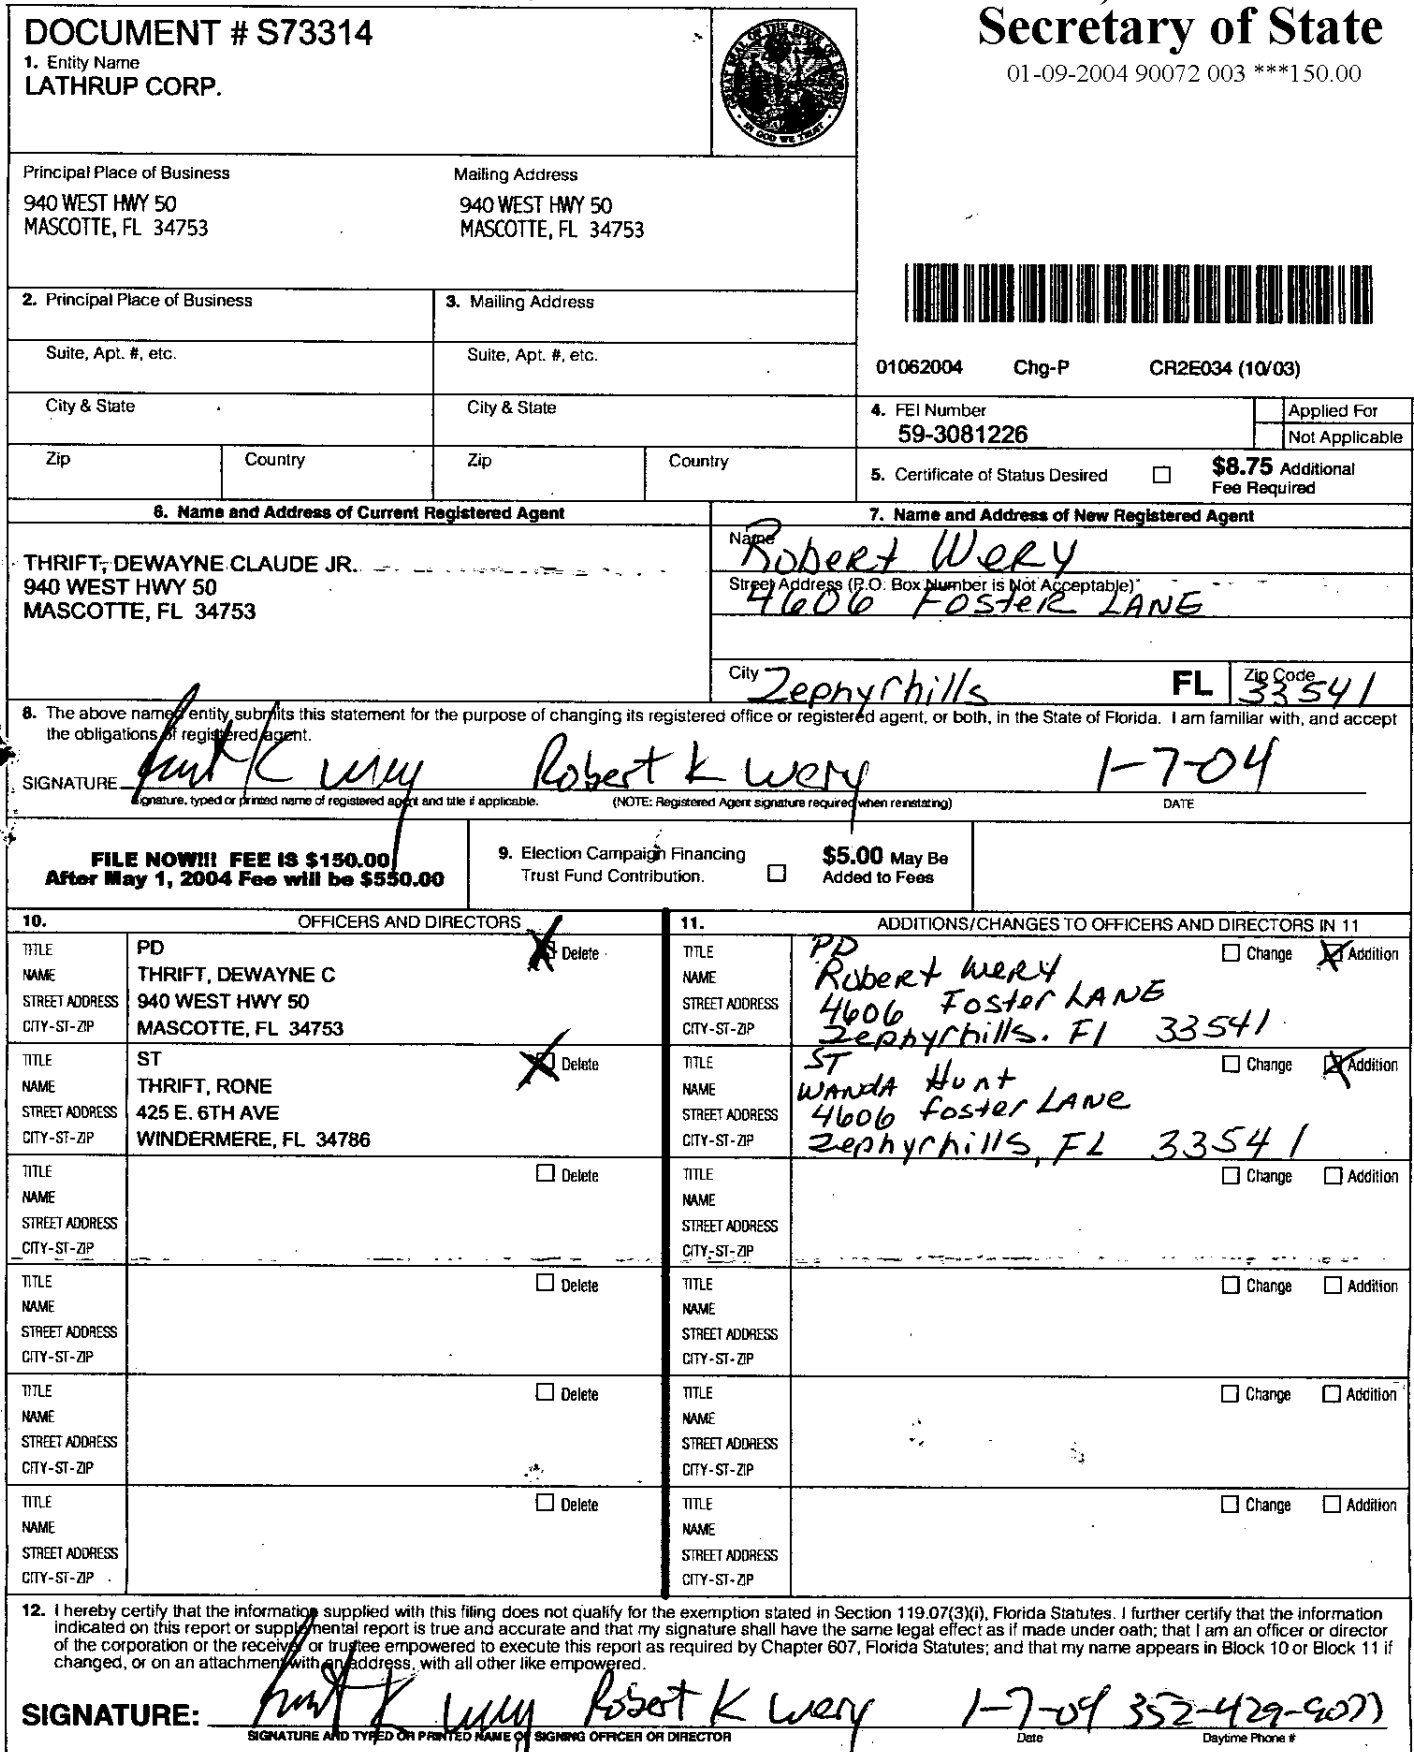 DOCUMENT # S73314
1. Entity Name
LATHRUP CORP.
Secretary of State
01-09-2004 90072 003 ***150.00
GREAT SEAL OF THE STATE OF FLORIDA
IN GOD WE TRUST
Principal Place of Business
940 WEST HWY 50
MASCOTTE, FL 34753
Mailing Address
940 WEST HWY 50
MASCOTTE, FL 34753
2. Principal Place of Business
3. Mailing Address
Suite, Apt. #, etc.
Suite, Apt. #, etc.
01062004 Chg-P CR2E034 (10/03)
City & State
City & State
4. FEI Number
59-3081226
Applied For
Not Applicable
Zip Country Zip Country
5. Certificate of Status Desired
$8.75 Additional
Fee Required
6. Name and Address of Current Registered Agent
THRIFT, DEWAYNE CLAUDE JR.
940 WEST HWY 50
MASCOTTE, FL 34753
7. Name and Address of New Registered Agent
Name Robert Wery
Street Address (P.O. Box Number is Not Acceptable)
4606 Foster LANE
City Zephyrhills FL Zip Code 33541
8. The above named entity submits this statement for the purpose of changing its registered office or registered agent, or both, in the State of Florida. I am familiar with, and accept
the obligations of registered agent.
SIGNATURE Robert K Wery 1-7-04
Signature, typed or printed name of registered agent and title if applicable. (NOTE: Registered Agent signature required when reinstating) DATE
FILE NOW!!! FEE IS $150.00
After May 1, 2004 Fee will be $550.00
9. Election Campaign Financing
Trust Fund Contribution.
$5.00 May Be
Added to Fees
10. OFFICERS AND DIRECTORS
TITLE PD Delete
NAME THRIFT, DEWAYNE C
STREET ADDRESS 940 WEST HWY 50
CITY-ST-ZIP MASCOTTE, FL 34753
TITLE ST Delete
NAME THRIFT, RONE
STREET ADDRESS 425 E. 6TH AVE
CITY-ST-ZIP WINDERMERE, FL 34786
TITLE Delete
NAME
STREET ADDRESS
CITY-ST-ZIP
TITLE Delete
NAME
STREET ADDRESS
CITY-ST-ZIP
TITLE Delete
NAME
STREET ADDRESS
CITY-ST-ZIP
TITLE Delete
NAME
STREET ADDRESS
CITY-ST-ZIP
11. ADDITIONS/CHANGES TO OFFICERS AND DIRECTORS IN 11
TITLE PD Change Addition
NAME Robert Wery
STREET ADDRESS 4606 Foster LANE
CITY-ST-ZIP Zephyrhills. Fl 33541
TITLE ST Change Addition
NAME WANDA Hunt
STREET ADDRESS 4606 foster LANe
CITY-ST-ZIP Zephyrhills, FL 33541
TITLE Change Addition
NAME
STREET ADDRESS
CITY-ST-ZIP
TITLE Change Addition
NAME
STREET ADDRESS
CITY-ST-ZIP
TITLE Change Addition
NAME
STREET ADDRESS
CITY-ST-ZIP
TITLE Change Addition
NAME
STREET ADDRESS
CITY-ST-ZIP
12. I hereby certify that the information supplied with this filing does not qualify for the exemption stated in Section 119.07(3)(i), Florida Statutes. I further certify that the information
indicated on this report or supplemental report is true and accurate and that my signature shall have the same legal effect as if made under oath; that I am an officer or director
of the corporation or the receiver or trustee empowered to execute this report as required by Chapter 607, Florida Statutes; and that my name appears in Block 10 or Block 11 if
changed, or on an attachment with an address, with all other like empowered.
SIGNATURE: Robert K Wery 1-7-04 352-429-9077
SIGNATURE AND TYPED OR PRINTED NAME OF SIGNING OFFICER OR DIRECTOR Date Daytime Phone #